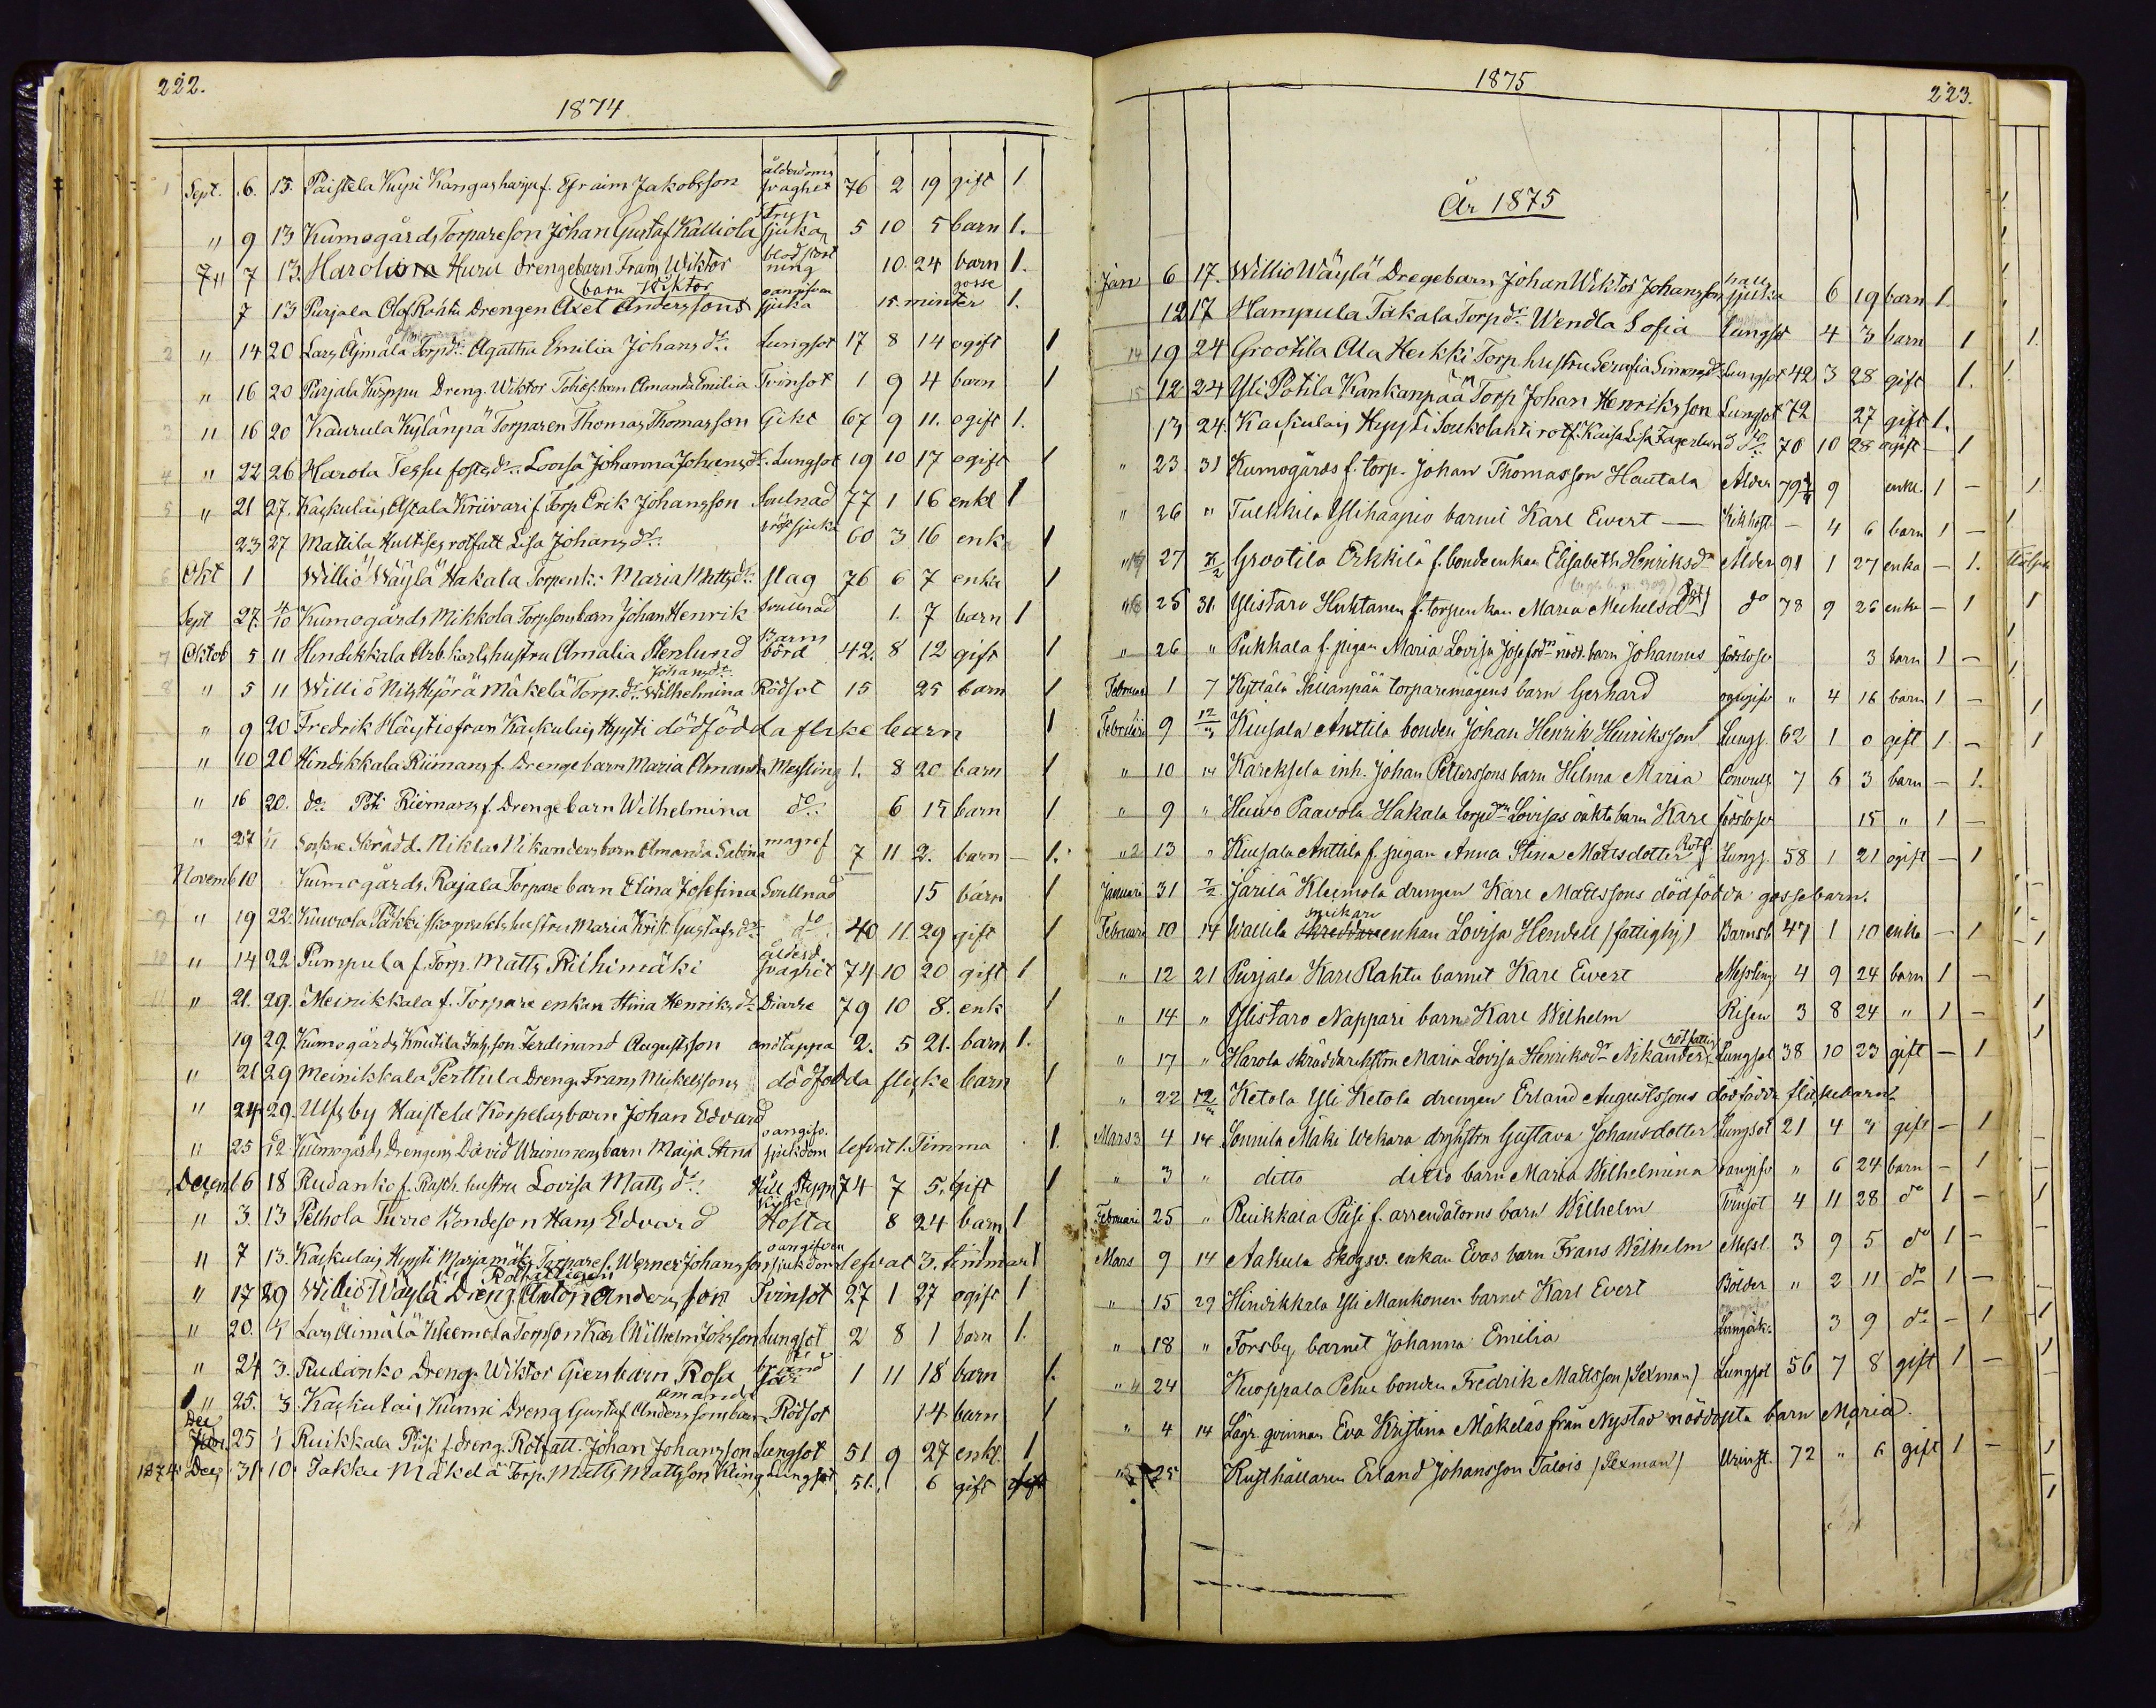 222.
1874
Sept. 6. 13. Paistela Kuysi Kangasharju f. Efraim Jakobsson ålderdoms svaghet 76 2 19 gift 1
" 9 13 Kumogårds Torpareson Johan Gustaf Kalliola strypsjuka 5 10 5 barn 1.
7 13. Harola Huru Drengebarn Frans Wiktor blodstörtning 10. 24 barn 1.
7 13 Purjala Olof Rahtu Drengen Axel Anderssons barn Wiktor oangifven sjuka 15 minuter gosse 1.
2 " 14 20 Lars Ajmälä Torpd:r Agatha Emilia Johans d:r Lungsot 17 8 14 ogift 1
" 16 20 Purjala Kuppu Dreng. Wiktor barn Amanda Emilia Tvinsot 1 9 4 barn 1
3 " 16 20 Kaurula Kylänpä Torparen Thomas Thomasson Gikt 67 9 11. ogift 1.
4 " 22 26 Harola Tessu fosterd:r Lovisa Johanna Johansd:r Lungsot 19 10 17 ogift 1
5 " 21 27. Kaskulais Astala Kriivari f. Torp. Erik Johansson Svulnad 77 1 16 enkl 1
23 27 Mattila Hultis rotfatt. Lisa Johans d:r bröstsjuka 60 3 16 enka 1
6 Okt 1 Williö Wäylä Hakala Torpenk: Maria Mattsd:r slag 76 6 7 enka 1
Sept 27. 4/10 Kumogårds Mikkola Torpsonsbarn Johan Henrik Svullnad 1. 7 barn 1
7 Oktob 5 11 Hindikkala Arb. karls hustru Amalia Stenlund Barnsbörd 42. 8 12 gift 1
8 " 5 11 Williö Nils Hyörä Mäkelä Torp. d:r Wilhelmina Johansd:r Rödsot 15 25 barn 1
" 9 20 Fredrik Häystio från Kaskulais Hyysti dödfödda flickebarn 1
" 10 20 Hindikkala Riimans f. Drengebarn Maria Amanda Messling 1. 8 20 barn 1
" 16 20. d:o Riimans f. Drengebarn Wilhelmina d:o 6 15 barn 1
" 27 1/11 Skrädd. Niklas Nikanders barn Amanda Sabina magref 7 11 2. barn 1.
Novemb 10 Kumogårds Rajala Torpare barn Elina Josefina Svullnad 15 barn 1
9 " 19 22. Kuurola hustru Maria Krist. Gustafsd:r d:o 40 11. 29 gift 1
10 " 14 22 Pumpula f. Torp. Matts Riihimäki ålderd. svaghet 74 10 20 gift 1
11 " 21. 29. Meinikkala f. Torpare enkan Stina Henriksd:r Diarré 79 10 8. enk 1
19 29. Kumogårds Knutila Inh. son Ferdinand Augustsson andtäppa 2. 5 21. barn 1.
" 21 29 Meinikkala Perttula Dreng. Frans Mickelssons dödfödda flicke barn 1
" 24 29. Ulfsby Haistela Korpelas barn Johan Edvard
" 25 Kumogårds Drengens David Weinunens barn Maija Stina oangifv. sjukdom lefvat 1. Timma 1.
Decemb 6 18 Rudanko f. Rusth. hustru Lovisa Matts d:r Håll & Stygn 74 7 5. gift 1
" 3. 13 Pelhola Turre Bondeson Hans Edvard Hosta 8 24 barn 1
" 7 13. Kaskulais Hyysti Marjamäki Torpares. Werner Johansson oangifven sjukdom lefvat 3. timmar 1
" 17 29 Williö Wäylä Dreng. Anton Andersson Rothattigen Tvinsot 27 1 27 ogift 1
" 20. Lars Äimälä Kleemola Torpson Karl Wilhelm Johsson Lungsot 2 8 1 barn 1.
" 24 3. Rudanko Dreng. Wiktor Giers barn Rosa 1 11 18 barn 1.
" 25. 3. Kaskulais Kunni Dreng Gustaf Anderssons barn Amanda Rödsot 14 barn 1
Dec 25 Ruikkala Piisi f. dreng. Rotfatt. Johan Johansson Lungsot 51 9 27 enkl. 1
1874 Dec. 31. 10. Takku Mäkelä Torp. Matts Mattsson Kling Lungsot 51. 6 gift
1875
223.
År 1875
Jan 6 17. Williö Wäylä Dregebarn Johan Wiktor Johansson halssjuka 6 19 barn 1.
12 17 Hampula Takala Torp d:r Wendla Sofia Lungsot 4 3 barn 1
14 19 24 Grootila Ala Heikki Torp hustru Serafia Simonsd:r Lungsot 42 3 28 gift 1.
15 12 24 Yli Potila Kankanpää Torp Johan Henriksson Lungsot 72 27 gift 1.
13 24. Kaskulais Hyysti Soukolahti rotf. Kaisa Lisa Fagerlund d:o 70 10 28 ogift 1
" 23. 31 Kumogårds f. torp. Johan Thomasson Hautala Ålder 79 9 enkl. 1 –
" 26 " Tulkkila Ylihaapio barnet Karl Ewert — Kikhost – 4 6 barn 1 –
" 27 Grootila Erkkilä f. bondeenkan Elisabeth Henriksd:r Ålder 91 1 27 enka – 1.
" 25 31. Ylistaro Huhtanen f. torpenkan Maria Michelsd:r d:o 78 9 26 enka – 1
" 26 " Pukkala f. pigan Maria Lovisa Josefsd:rs nödd. barn Johannes förlossn 3 barn 1 –
Februari 1 7 Kyttälä Sillanpää torparemågens barn Gerhard oangifv " 4 16 barn 1 –
Februari 9 Kiusala Anttila bonden Johan Henrik Henriksson Lungs. 62 1 0 gift 1 –
" 10 " Kareksela inh. Johan Petterssons barn Hilma Maria Convuls. 7 6 3 barn – 1.
" 9 " Huivo Paavola Hakala torpd:rn Lovisas oäkta barn Karl förlossn 15 " 1 –
" 13 " Kiusala Anttila f. pigan Anna Stina Mattsdotter Rotf Lungs. 58 1 21 ogift – 1
Januari 31 7/2 Järilä Kleemola drengen Karl Mattssons dödfödda gossebarn.
Februari 10 14 Wallila snikare enkan Lovisa Hendell (fattighj) Barnsb 47 1 10 enka – 1
" 12 21 Purjala Karl Rahtu barnet Karl Evert Messling 4 9 24 barn 1 –
" 14 " Ylistaro Nappari barn Karl Wilhelm Risen 3 8 24 " 1 –
" 17 " Harola skräddarehstrn Maria Lovisa Henriksd:r Nikander rotfattig Lungsot 38 10 23 gift – 1
" 22 Ketola Yli Ketola drengen Erland Augustssons dödfödda flickebarn
Mars 4 14 Sonnila Mäki Wekara drghstrn Gustava Johansdotter Lungsot 21 4 3 gift – 1
" 3 " ditto ditto barn Maria Wilhelmina oangifv " 6 24 barn – 1
Februari 25 " Ruikkala Piisi f. arrendatorns barn Wilhelm Tvinsot 4 11 28 d:o 1 –
Mars 9 14 Aakula skogsv. enkan Evas barn Frans Wilhelm Messl. 3 9 5 d:o 1 –
" 15 29 Hindikkala Yli Maukonen barnet Karl Evert Bölder " 2 11 d:o 1 –
" 18 " Forsby barnet Johanna Emilia 3 9 d:o – 1
" 24 Kuoppala Pehu bonden Fredrik Mattsson (Sexman) Lungsot 56 7 8 gift 1 –
" 4 14 Lägr. qvinnan Eva Kristina Mäkeläs från Nystad nöddöpta barn Maria.
25 Rusthållaren Erland Johansson Talois (Sexman) Urinst. 72 " 6 gift 1 –